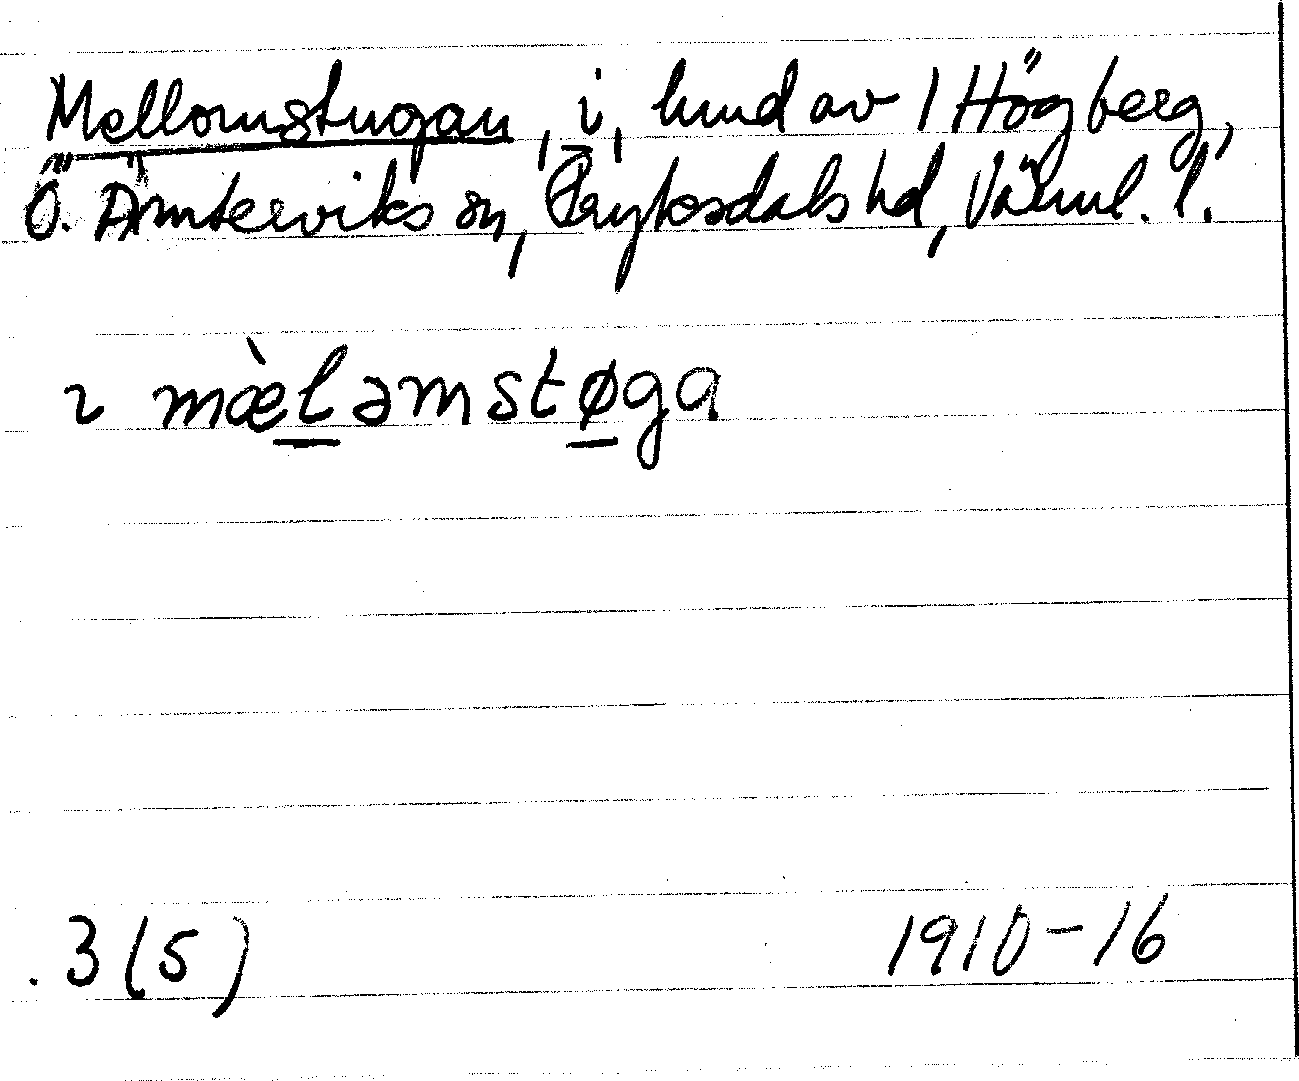 Mellomstugan, i, hmd av 1 Högberg,
Ö. Ämterviks sn, Fryksdals hd, Värml. l.
ı mæ̀ləmstøga
3(5) 1910-16